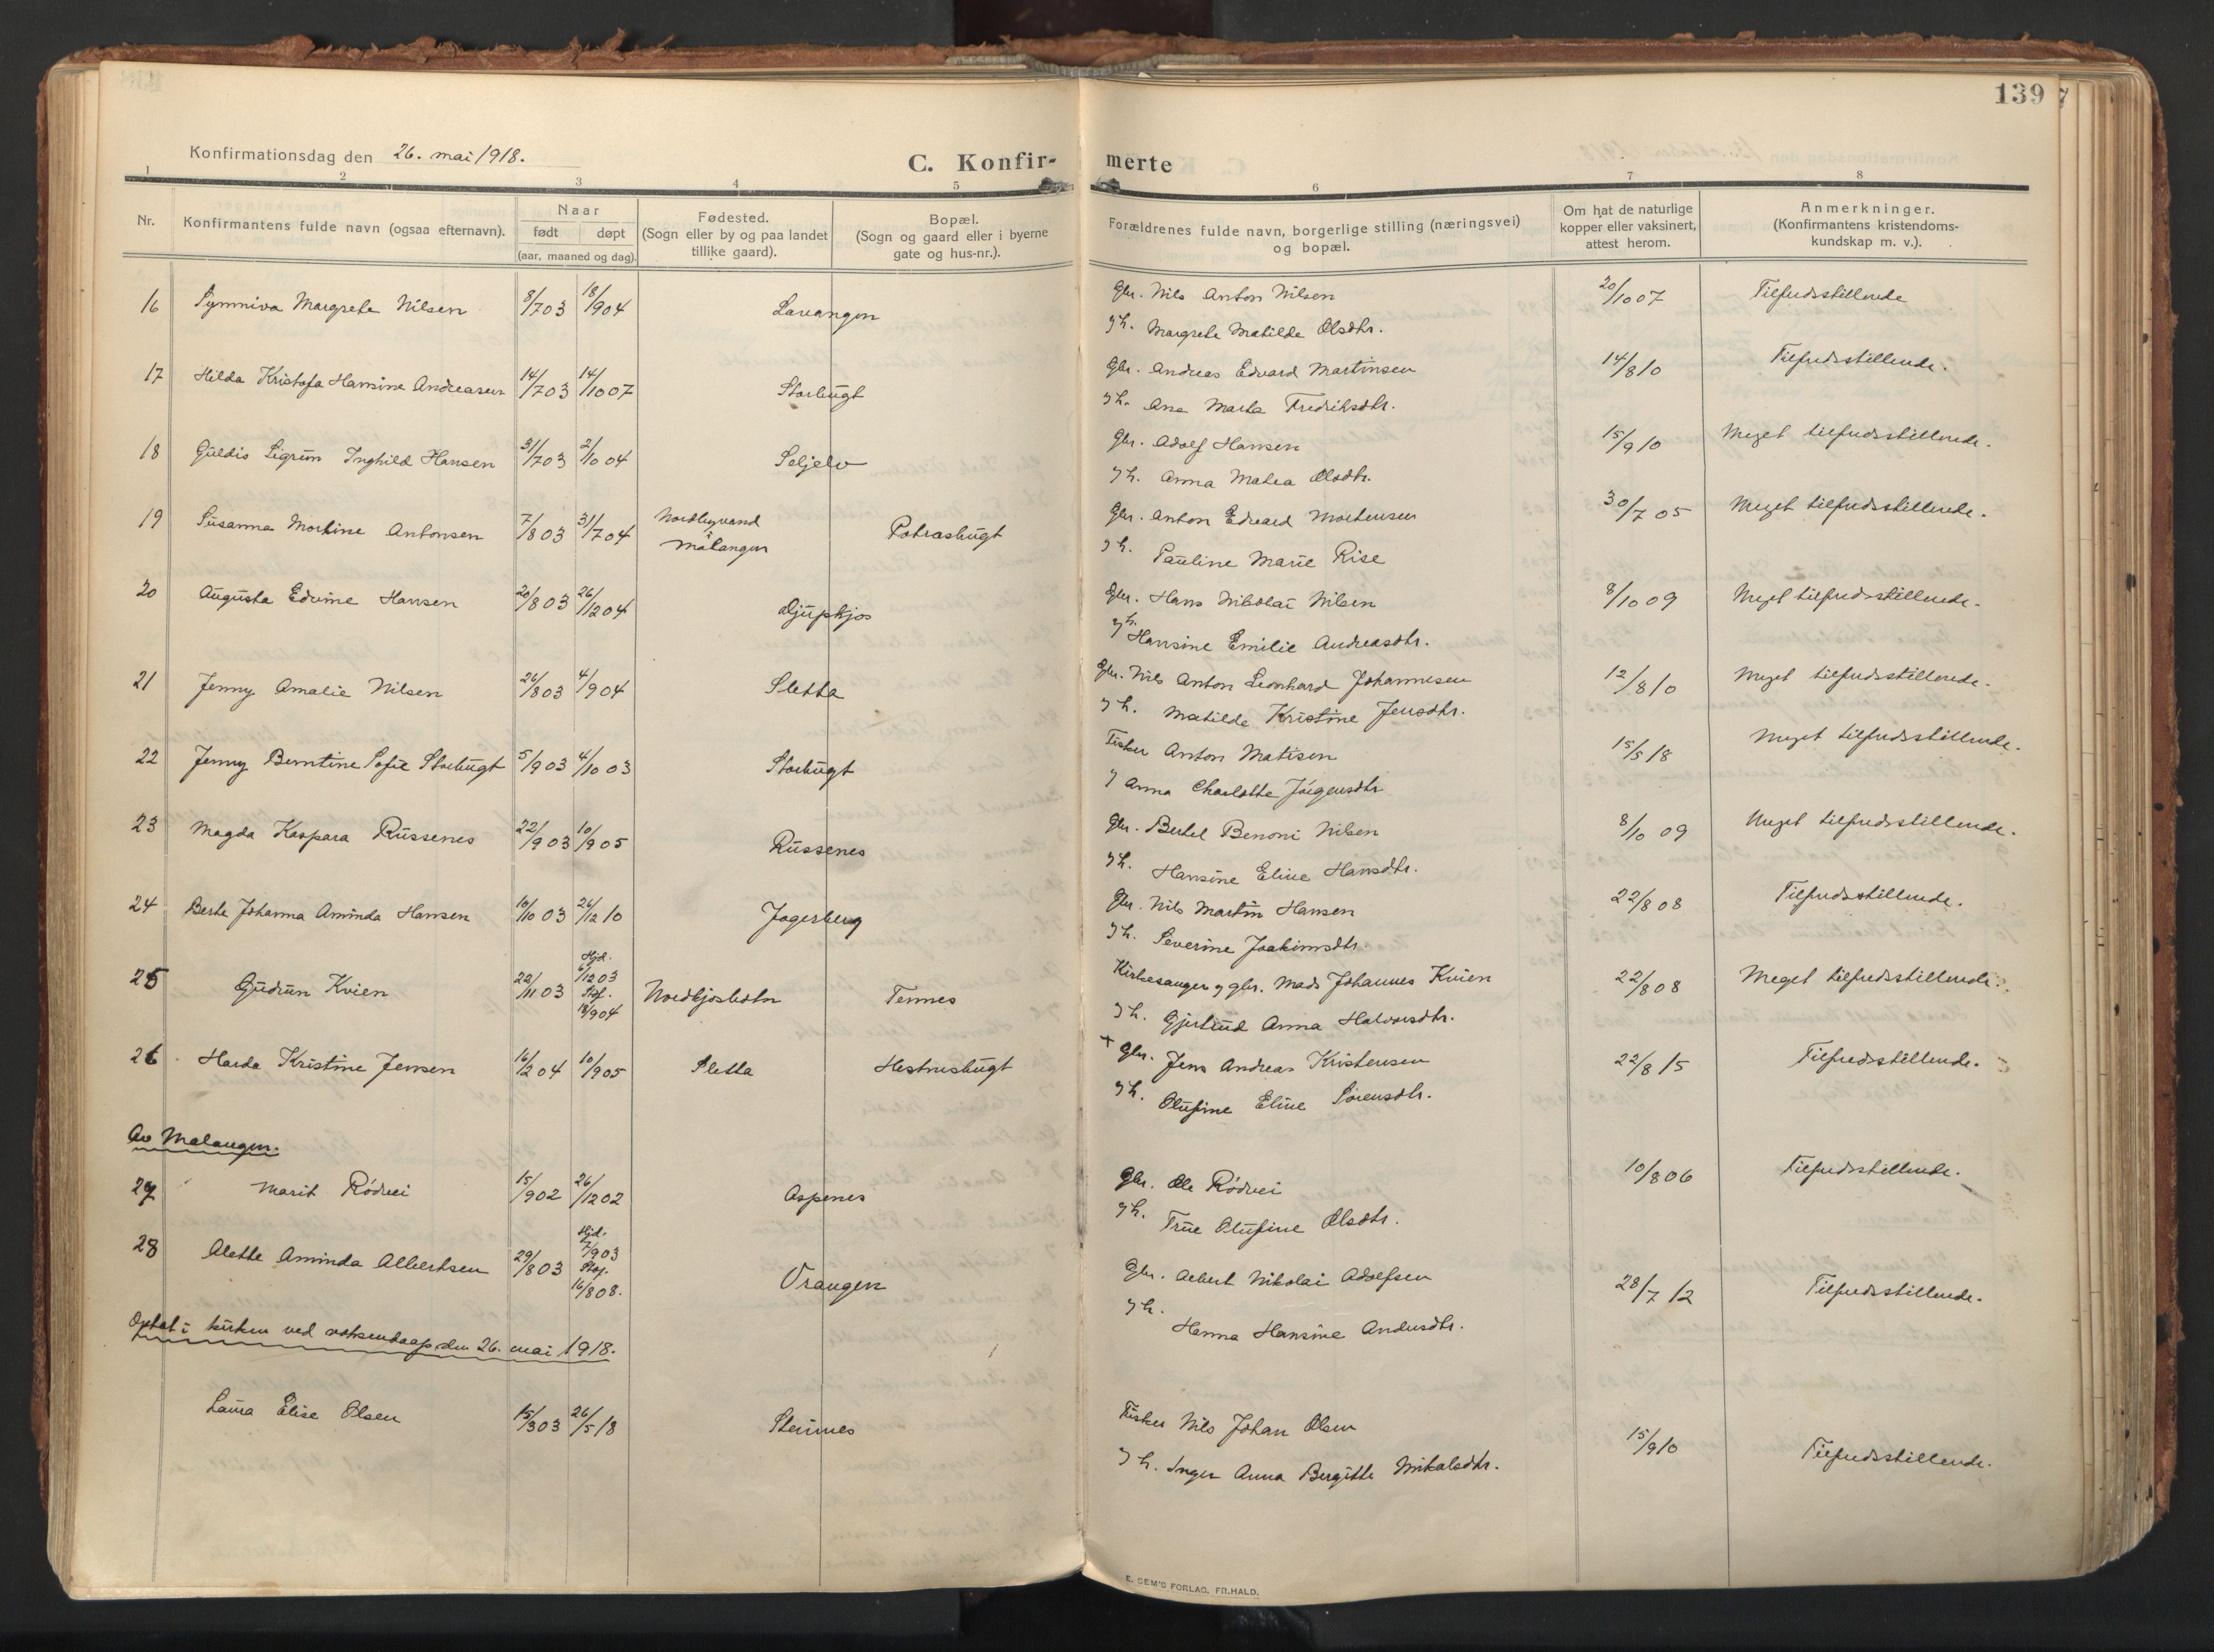 139
Konfirmationsdag den 26. mai 1918.
C. Konfir- merte
1 2 3 4 5 6 7 8
Nr. Konfirmantens fulde navn (ogsaa efternavn). Naar født døpt (aar, maaned og dag). Fødested. (Sogn eller by og paa landet tillike gaard). Bopæl. (Sogn og gaard eller i byerne gate og hus-nr.). Forældrenes fulde navn, borgerlige stilling (næringsvei) og bopæl. Om hat de naturlige kopper eller vaksinert, attest herom. Anmerkninger. (Konfirmantens kristendoms- kundskap m. v.).
16 Synniva Margrete Nilsen 8/7 03 18/9 04 Lavangen Gbr. Nils Anton Nilsen 20/10 07 Tilfredsstillende
og h. Margrete Matilde Olsdtr.
17 Hilda Kristofa Hansine Andreasen 14/7 03 14/10 07 Storbugt Gbr. Andreas Edvard Martinsen 14/8 10 Tilfredsstillende.
og h. Ane Marta Fredriksdtr.
18 Guldis Sigrun Inghild Hansen 31/7 03 2/10 04 Seljelv Gbr. Adolf Hansen 15/9 10 Meget tilfredsstillende.
og h. Anna Matea Olsdtr.
19 Susanna Mortine Antonsen 7/8 03 31/7 04 Nordbyvand i Målangen Potrasbugt Gbr. Anton Edvard Mortensen 30/7 05 Meget tilfredsstillende.
og h. Pauline Marie Rise
20 Augusta Edvine Hansen 20/8 03 26/12 04 Djupkjos Gbr. Hans Nikolai Nilsen 8/10 09 Meget tilfredsstillende.
og h. Hansine Emilie Andreasdtr.
21 Jenny Amalie Nilsen 26/8 03 4/9 04 Sletta Gbr. Nils Anton Leonhard Johannesen 12/8 10 Meget tilfredsstillende.
og h. Matilde Kristine Jensdtr.
22 Jenny Berntine Sofie Storbugt 5/9 03 4/10 03 Storbugt Fisker Anton Matisen 15/5 18 Meget tilfredsstillende.
og Anna Charlotte Jørgensdtr
23 Magda Kaspara Russenes 22/9 03 10/9 05 Russenes Gbr. Bertel Benoni Nilsen 8/10 09 Meget tilfredsstillende.
og h. Hansine Eline Hansdtr.
24 Berte Johanna Aminda Hansen 10/10 03 26/12 10 Jogerberg Gbr. Nils Martin Hansen 22/8 08 Tilfredsstillende.
og h. Severine Joakimsdtr.
25 Gudrun Kvien 22/11 03 Hjd. 6/12 03 Stof. 18/9 04 Nordkjosbotn Tennes Kirkesanger og gbr. Mads Johannes Kvien 22/8 08 Meget tilfredsstillende.
og h. Gjertrud Anna Halvorsdtr.
26 Harda Kristine Jensen 16/2 04 10/9 05 Sletta Hestnesbugt + Gbr. Jens Andreas Kristensen 22/8 15 Tilfredsstillende.
og h. Olufine Eline Sørensdtr.
Av Malangen.
27 Marit Rødvei 15/9 02 26/12 02 Aspenes Gbr. Ole Rødvei 10/8 06 Tilfredsstillende.
og h. Trine Olufine Olsdtr.
28 Alette Aminda Albertsen 29/8 03 Hjd. 7/9 03 Stof. 16/8 08. Vrangen Gbr. Albert Nikolai Adolfsen 28/7 12 Tilfredsstillende.
og h. Hanna Hansine Andersdtr.
Optat i kirken ved voksendaap den 26. mai 1918.
Laura Elise Olsen 15/3 03 26/5 18 Steines Fisker Nils Johan Olsen 15/9 10 Tilfredsstillende.
og h. Inger Anna Bergitte Mikalsdtr.
E. SEM'S FORLAG, FR.HALD.